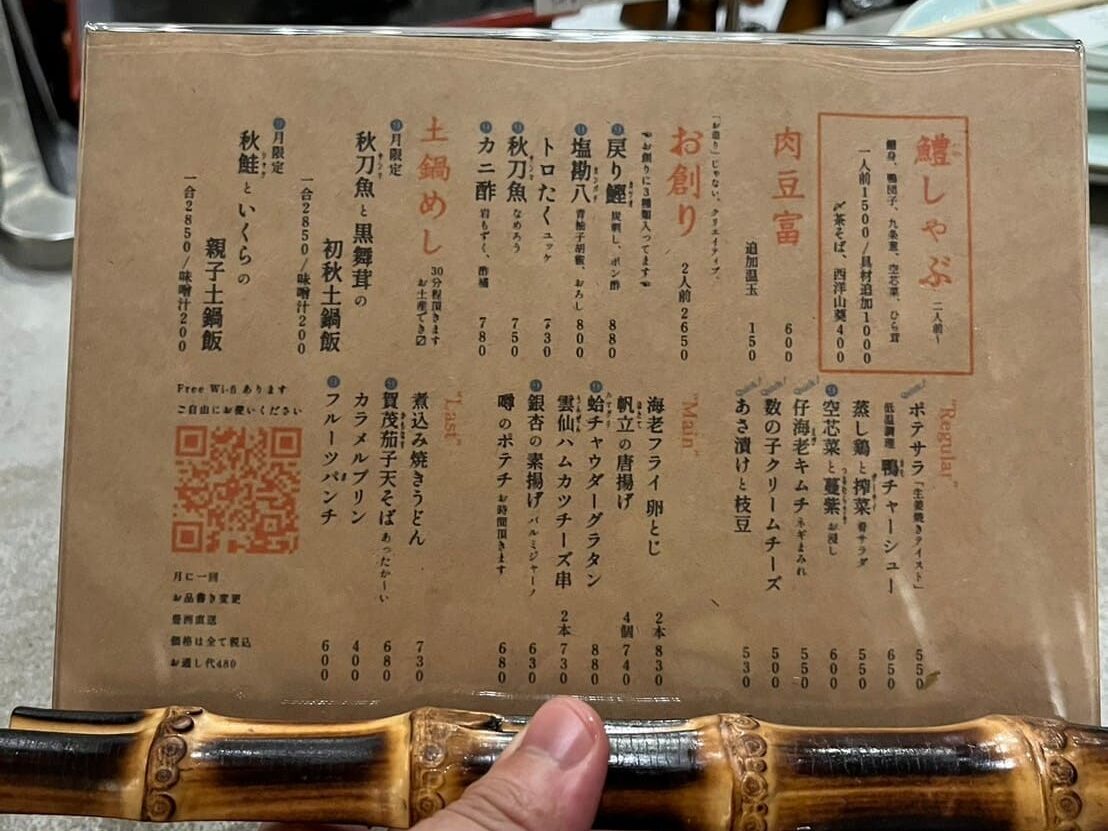 鱧しゃぶ 二人前〜
鱧身、鴨団子、九条葱、空芯菜、ひら茸
一人前1500/具材追加1000
〆茶そば、西洋山葵400
肉豆富 600
追加温玉 150
「お造り」じゃない、クリエイティブ。
お創り 2人前 2650
お創りに3種類入ってます
戻り鰹 炭刺し、ポン酢 880
塩勘八 青柚子胡椒、おろし 800
トロたく ユッケ 730
秋刀魚 なめろう 750
カニ酢 岩もずく、酢橘 780
土鍋めし 30分程頂きます お土産でき〼
9月限定
秋刀魚と黒舞茸の
初秋土鍋飯
一合2850/味噌汁200
9月限定
秋鮭といくらの
親子土鍋飯
一合2850/味噌汁200
"Regular"
ポテサラ「生姜焼きテイスト」 550
低温調理 鴨チャーシュー 650
蒸し鶏と搾菜 葱サラダ 550
空芯菜と蔓紫 お浸し 600
仔海老キムチ ネギまみれ 550
数の子クリームチーズ 500
あさ漬けと枝豆 530
"Main"
海老フライ 卵とじ 2本 830
帆立の唐揚げ 4個 740
蛤チャウダーグラタン 880
雲仙ハムカツチーズ串 2本 730
銀杏の素揚げ パルミジャーノ 630
噂のポテチ お時間頂きます 680
"Last"
煮込み焼きうどん 730
賀茂茄子天そば あったか〜い 680
カラメルプリン 400
フルーツパンチ 600
Free Wi-fi あります
ご自由にお使いください
月に一回
お品書き変更
豊洲直送
価格は全て税込
お通し代480